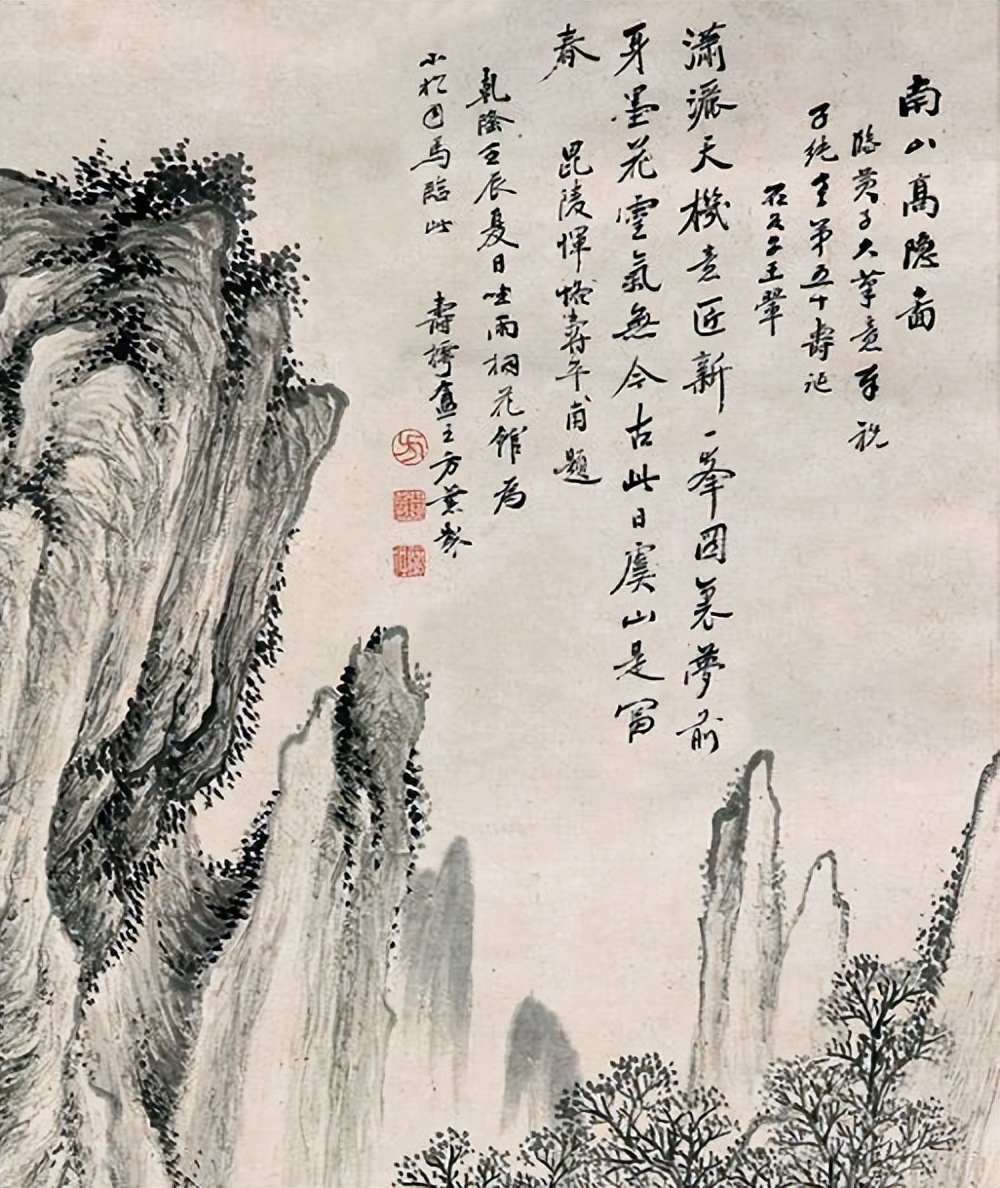 南山高隱啚
臨黄子久筆意奉祝
子純弟五十壽誕
石谷子王翬
瀟灑天機意匠新一峯圖裏夢前
身墨花靈氣無今古此日虞山是富
春
毘陵惲恪壽平甫題
乾隆壬辰夏日坐雨桐花館為
小松司馬臨此 壽樗盦主方薰
方